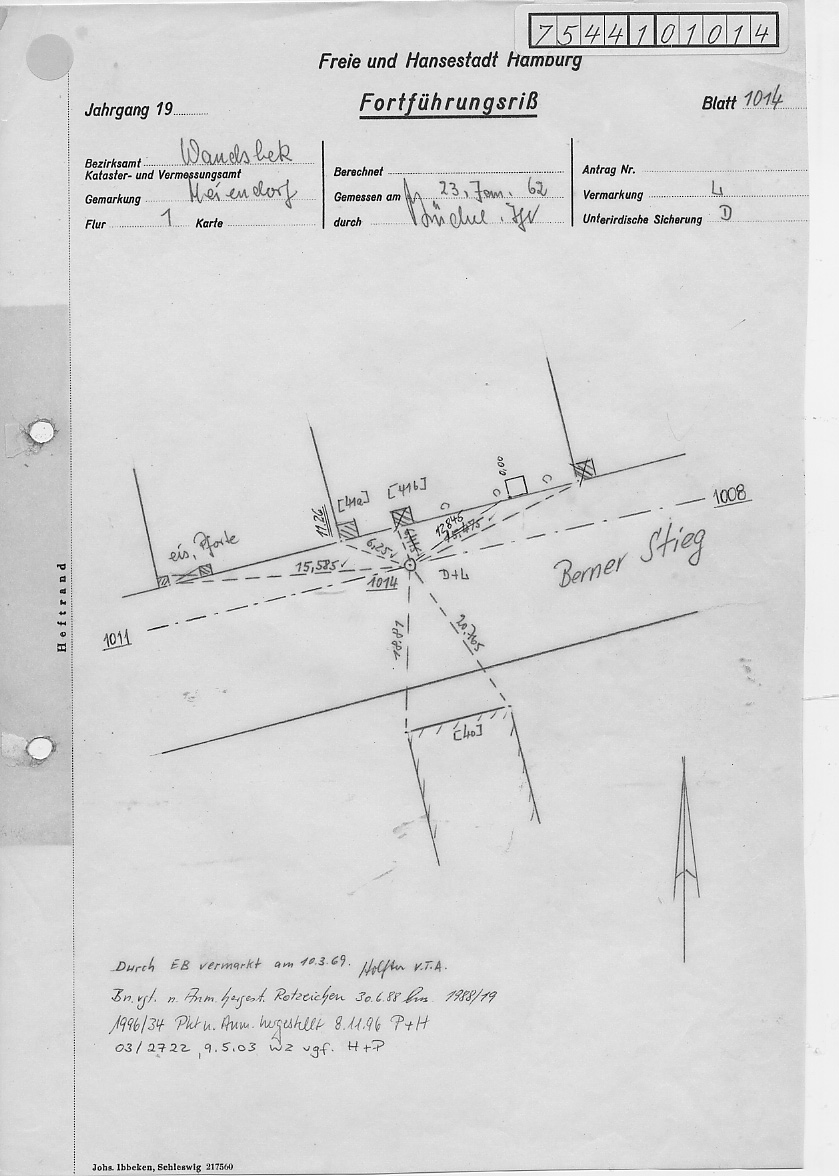 7544101014
Freie und Hansestadt Hamburg
Jahrgang 19
Fortführungsriß
Blatt 1014
Bezirksamt Wandsbek
Kataster- und Vermessungsamt
Gemarkung Meiendorf
Flur 1 Karte
Berechnet
Gemessen am 23. Jan. 62
durch
Antrag Nr.
Vermarkung L
Unterirdische Sicherung D
0,00
[41a]
[41b]
11.26
1008
12845
15,475
eis. Pforte
6,25
15,585
1014
D+L
Berner Stieg
1011
20,765
[40]
Heftrand
Durch EB vermarkt am 10.3.69. V.T.A.
Bn. vgf. n. Anm. hergest. Rotzeichen 30.6.88 1988/19
1996/34 Pkt n. Anm. hergestellt 8.11.96 P+H
03/2722, 9.5.03 WZ vgf. H+P
Johs. Ibbeken, Schleswig 217560